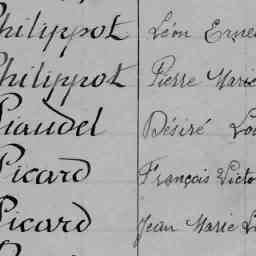 Philippot Léon Erne
Philippot Pierre Marie
Piaudel Désiré Lou
Picard François Victo
Picard Jean Marie L